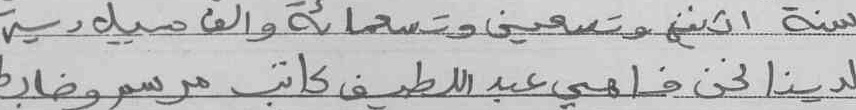 سنة اثنين وتسعين وتسعمائة والف ميلادية
لدينا نحن فاهمي عبد اللطيف كاتب مرسم وضابط